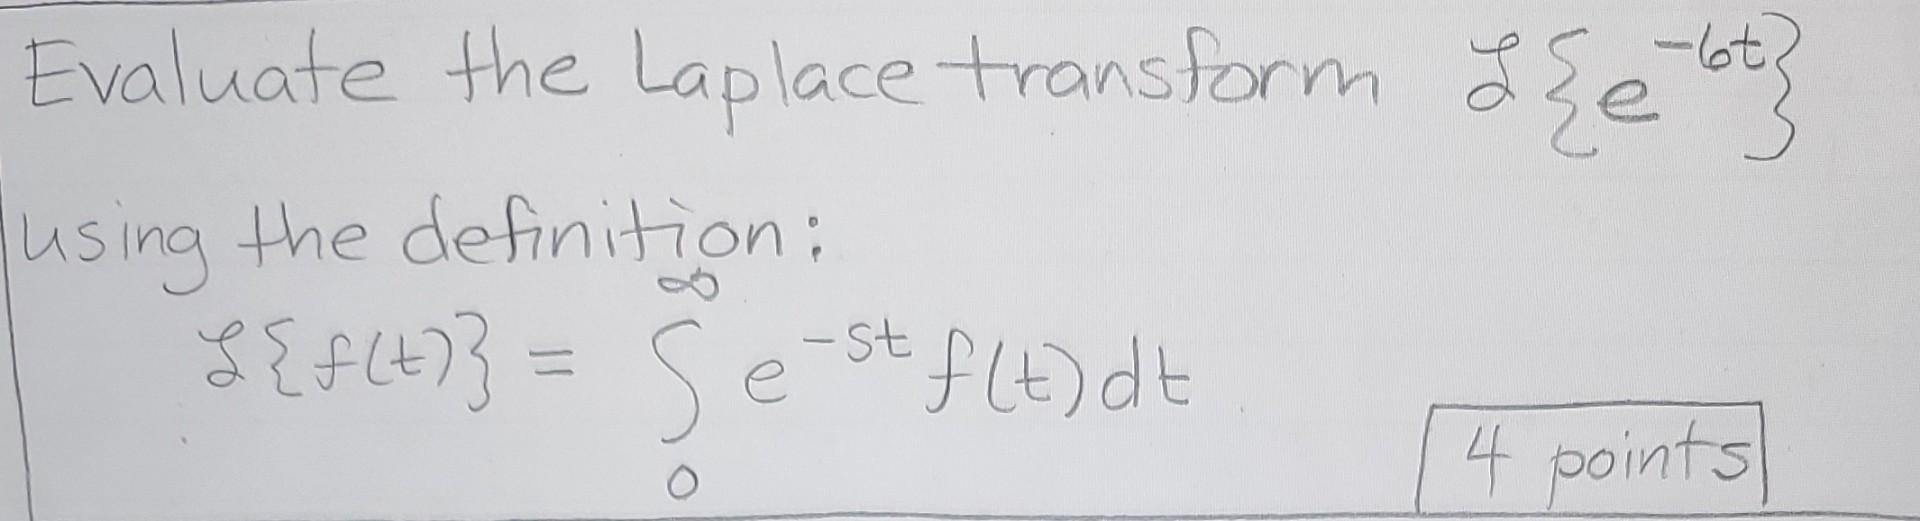 Evaluate the Laplace transform ℒ{e^{-6t}}
using the definition:
ℒ{f(t)} = ∫_0^∞ e^{-st} f(t) dt
4 points